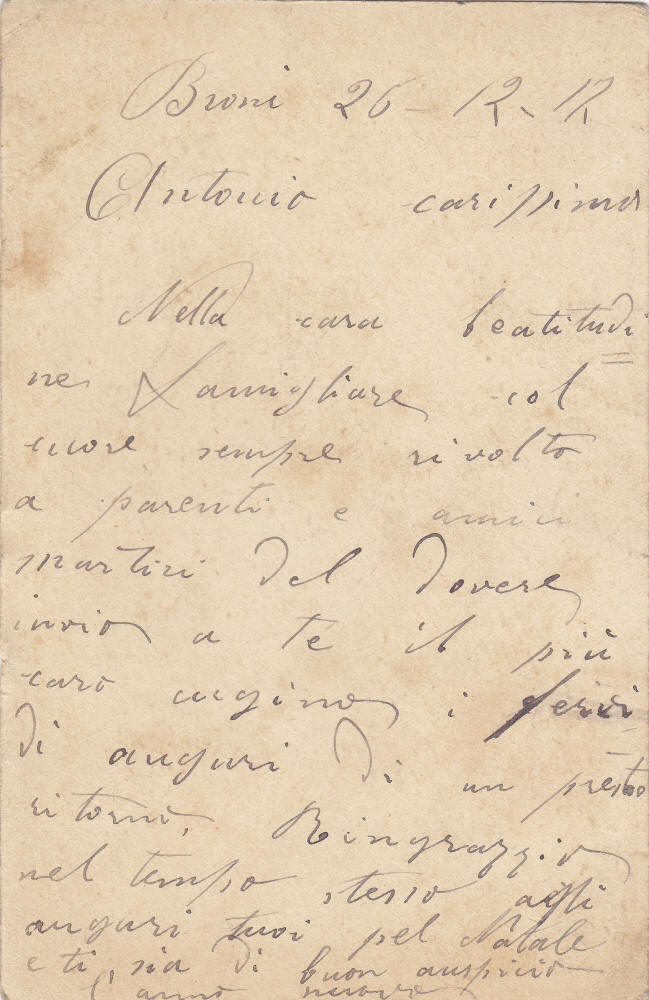 Broni 26-12-17
Antonio carissimo
Nella cara beatitudi
ne famigliare col
cuore sempre rivolto
a parenti e amici
martiri del dovere
invio a te il più
caro cugino i fervi
di auguri di un presto
ritorno. Ringrazzio
nel tempo stesso agli
auguri tuoi pel Natale
e ti sia di buon auspicio
l'anno nuovo